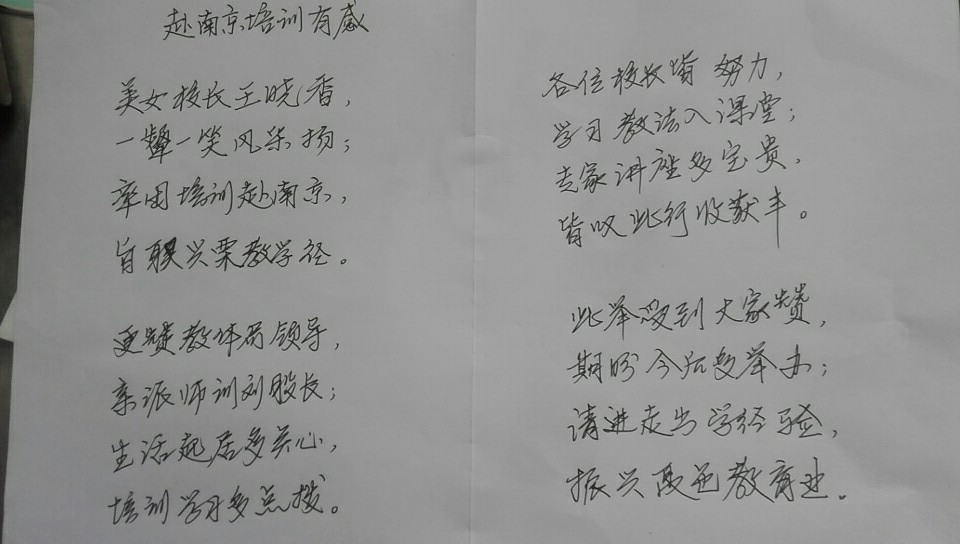 赴南京培训有感
美女校长王晓香，
一颦一笑风采扬；
率团培训赴南京，
旨取兴栗教学径。
更赞教体局领导，
亲派师训刘股长；
生活起居多关心，
培训学习多点拨。
各位校长皆努力，
学习教法入课堂；
专家讲座多宝贵，
皆叹此行收获丰。
此举受到大家赞，
期盼今后多举办；
请进走出学经验，
振兴 教育业。